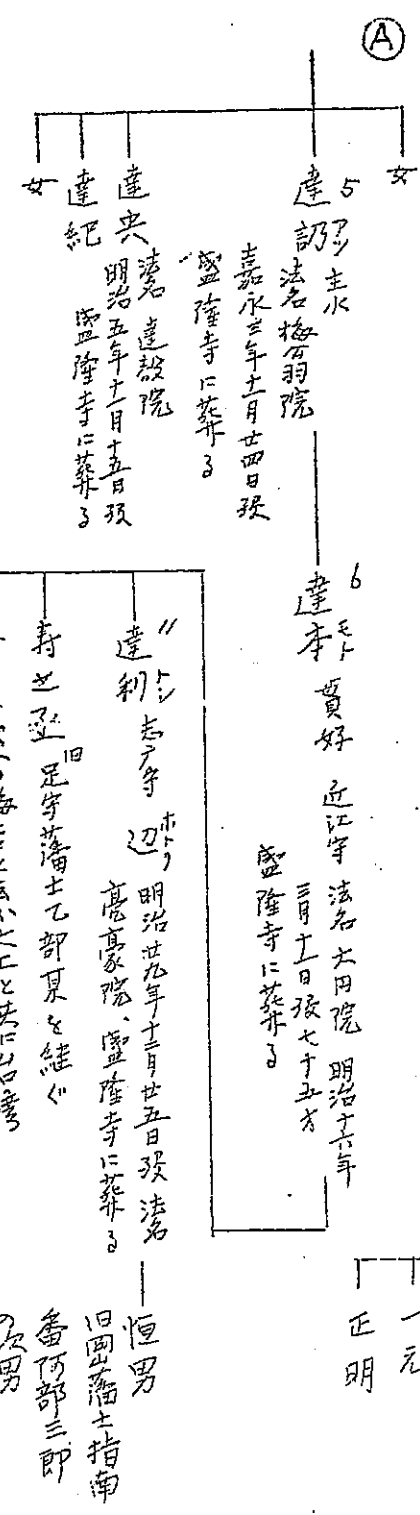 Ⓐ
女
5
達訒 アツ 主水
法名 梅百羽院
嘉永三年十二月廿四日歿
盛隆寺に葬る
達央 法名 達毅院
明治五年十二月十五日歿
盛隆寺に葬る
達紀
女
6
達本 モト 貫好 近江守 法名 大円院 明治十六年
三月十二日歿七十五才
盛隆寺に葬る
〃
達利 トシ 志广守 辺 ホトリ 明治廿九年十二月廿五日歿 法名
亮豪院、盛隆寺に葬る
寿之丞 旧足守藩士乙部某を継ぐ
恒男
旧岡山藩士指南
番阿部三郎
の次男
一元
正明